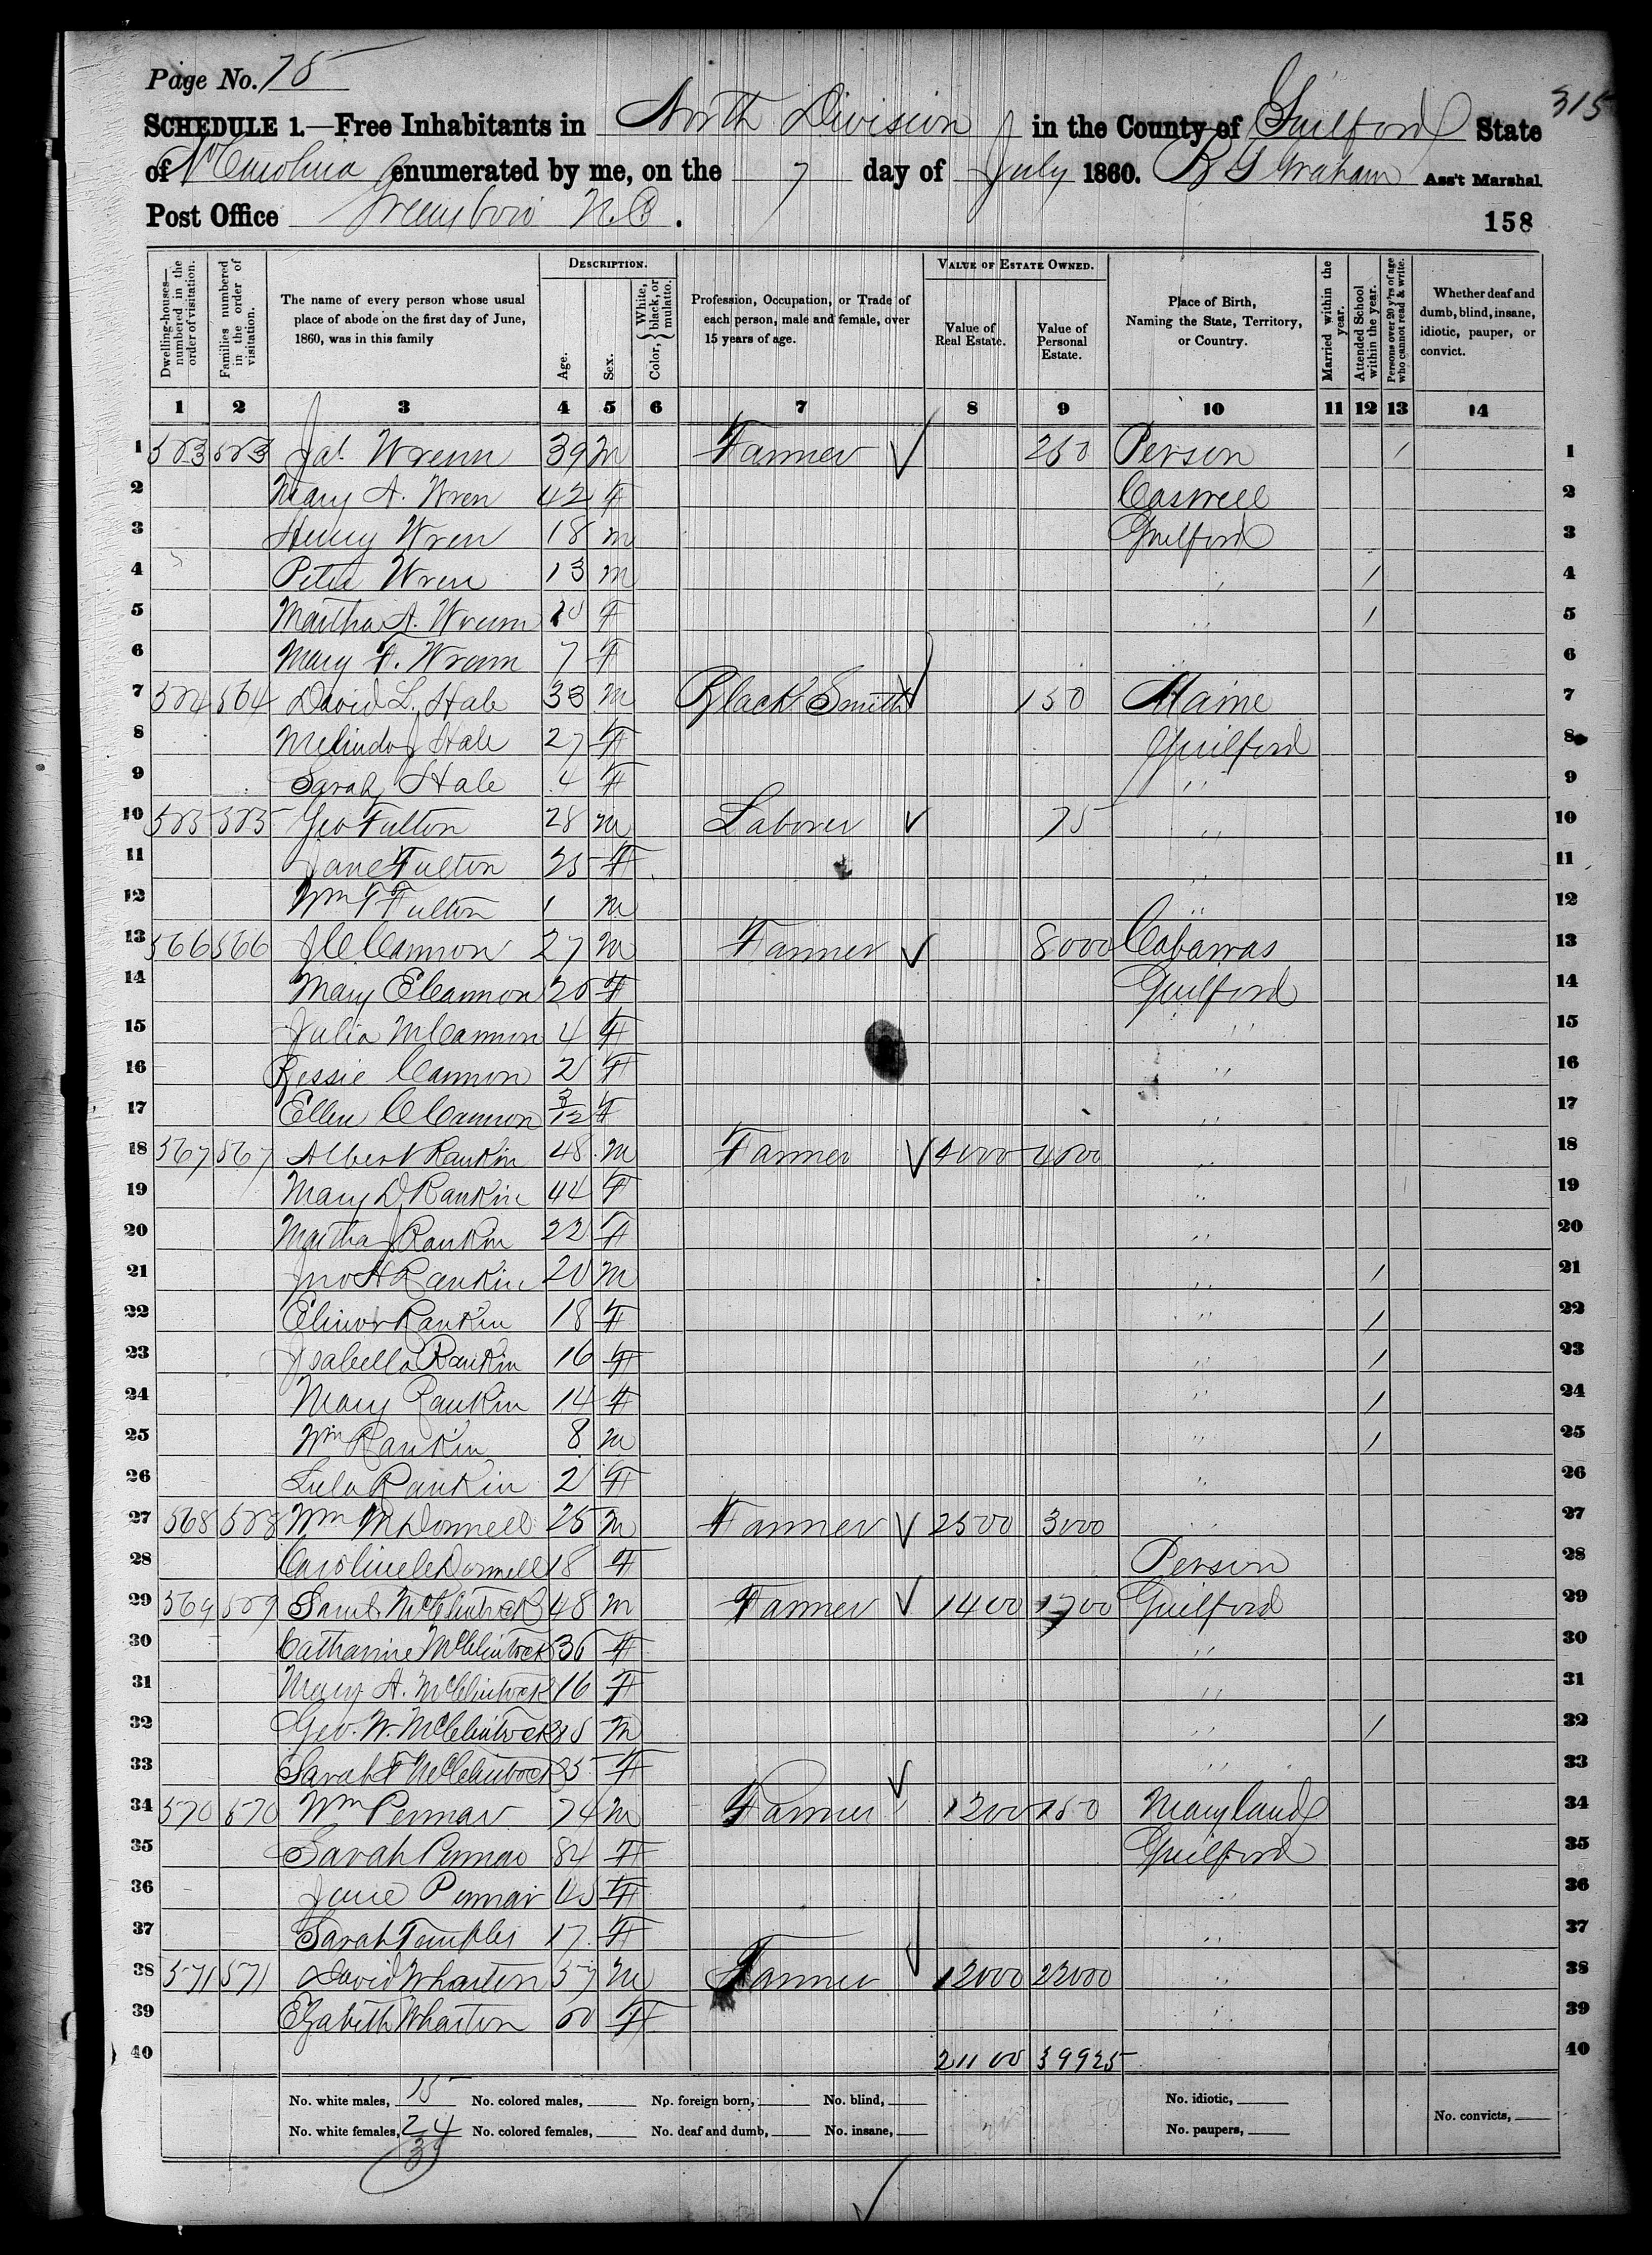 Page No. 75
315
SCHEDULE 1.—Free Inhabitants in North Division in the County of Guilford State
of N Carolina enumerated by me, on the 7 day of July 1860. R G Graham Ass't Marshal
Post Office Greensboro N.C.
158
Dwelling-houses—numbered in the order of visitation. Families numbered in the order of visitation. The name of every person whose usual place of abode on the first day of June, 1860, was in this family DESCRIPTION. Age. Sex. Color, {White, black, or mulatto. Profession, Occupation, or Trade of each person, male and female, over 15 years of age. VALUE OF ESTATE OWNED. Value of Real Estate. Value of Personal Estate. Place of Birth, Naming the State, Territory, or Country. Married within the year. Attended School within the year. Persons over 20 y'rs of age who cannot read & write. Whether deaf and dumb, blind, insane, idiotic, pauper, or convict.
1 2 3 4 5 6 7 8 9 10 11 12 13 14
1 Wrenn 39 M Farmer 250 Person / 1
2 Mary A. Wren 42 F Caswell 2
3 Henry Wren 18 M Guilford 3
4 Peter Wren 13 M " / 4
5 Martha A. Wrenn 10 F " / 5
6 Mary F. Wrenn 7 F " 6
7 564 David L. Hale 33 M Black Smith 150 Maine 7
8 Melinda J Hale 27 F Guilford 8
9 Sarah Hale 4 F " 9
10 Geo Fulton 28 M Laborer 75 " 10
11 Jane Fulton 25 F " 11
12 Wm F Fulton 1 M " 12
13 566 566 J C Cannon 27 M Farmer 8000 Cabarras 13
14 Mary E Cannon 26 F Guilford 14
15 Julia M Cannon 4 F " 15
16 Bessie Cannon 2 F " 16
17 Ellen C Cannon 3/12 F " 17
18 567 567 Albert Rankin 48 M Farmer 4000 4000 " 18
19 Mary D Rankin 44 F " 19
20 Martha J Rankin 22 F " 20
21 Jno H Rankin 20 M " / 21
22 Elinor Rankin 18 F " / 22
23 Isabella Rankin 16 F " / 23
24 Mary Rankin 14 F " / 24
25 Wm Rankin 8 M " / 25
26 Lula Rankin 2 F " 26
27 568 568 Wm McDonnell 25 M Farmer 2500 3000 " 27
28 Caroline Donnell 18 F Person 28
29 569 569 Saml McClintock 48 M Farmer 1400 1700 Guilford 29
30 Catharine McClintock 36 F " 30
31 Mary A. McClintock 16 F " 31
32 Geo. W. McClintock M " / 32
33 Sarah F McClintock F " 33
34 570 570 Wm Permar 74 M Farmer 1200 150 Maryland 34
35 Sarah Permar 84 F Guilford 35
36 Jane Permar 45 F " 36
37 Sarah Temples 17 F " 37
38 571 571 David Wharton 57 M Farmer 12000 22000 " 38
39 Elzabeth Wharton 60 F " 39
40 21100 39925 40
No. white males, 15 No. colored males, No. foreign born, No. blind, No. idiotic,
No. white females, 24 No. colored females, No. deaf and dumb, No. insane, No. paupers, No. convicts,
39